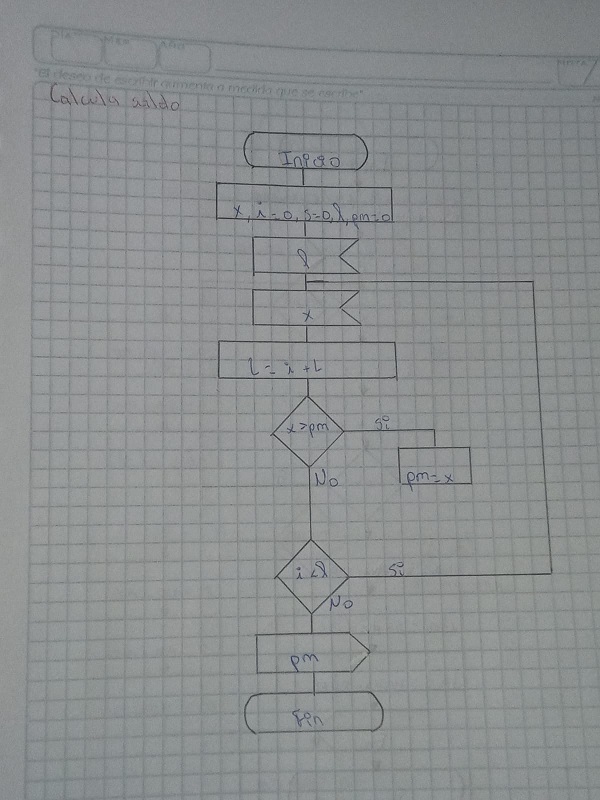 "El deseo de escribir aumenta a medida que se escribe"
Calcula saldo
Inicio
x, i=0, s=0, l, pm=0
l
x
i = i + 1
x > pm
Si
pm = x
No
i < l
Si
No
pm
Fin